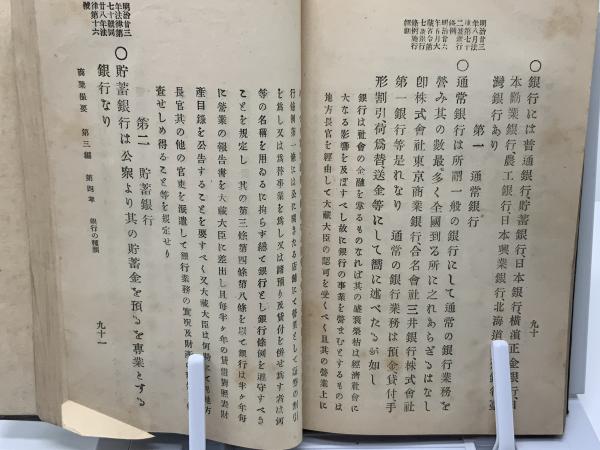 明治廿三
年八月法
律第七十
二號銀行
條例
明治廿六
年五月大
藏省令第
七號銀行
條例施行
細則
九十
〇銀行には普通銀行、貯蓄銀行、日本銀行、橫濱正金銀行、日
本勸業銀行、農工銀行、日本興業銀行、北海道
灣銀行あり
第一 通常銀行
〇通常銀行は所謂一般の銀行にして通常の銀行業務を
營み其の數最多く全國到る所に之れあらざるはなし
卽株式會社東京商業銀行合名會社三井銀行株式會社
第一銀行等是れなり 通常の銀行業務は預金、貸付、手
形割引、荷爲替送金等にして嚮に述べたるが如し
銀行は社會の金融を掌るものなれば其の盛衰榮枯は經濟社會に
大なる影響を及ぼすべし故に銀行の事業を營まむとするものは
地方長官を經由して大藏大臣の認可を受くべく且其の營業上に
明治廿三
年法律第
七十三號同
廿八年法
律第十六
號
行條例第一條には公に開きたる店舖にて營業として證券の割引
を爲し又は爲替事業を爲し又は諸預り及貸付を併せ爲す者は何
等の名稱を用ゐるに拘らず總て銀行とし銀行條例を遵守すべき
ことを規定し 其の第三條第四條第八條を以て銀行は半ヶ年每
に營業の報告書を大藏大臣に差出し且每半ヶ年の貸借對照表財
產目錄を公告することを要すべく又大藏大臣は何時にても地方
長官其の他の官吏を派遣して銀行業務の實況及財產の
査せしめ得ること等を規定せり
第二 貯蓄銀行
〇貯蓄銀行は公衆より其の貯蓄金を預るを專業とする
銀行なり
商業提要 第三編 第四章 銀行の種類
九十一